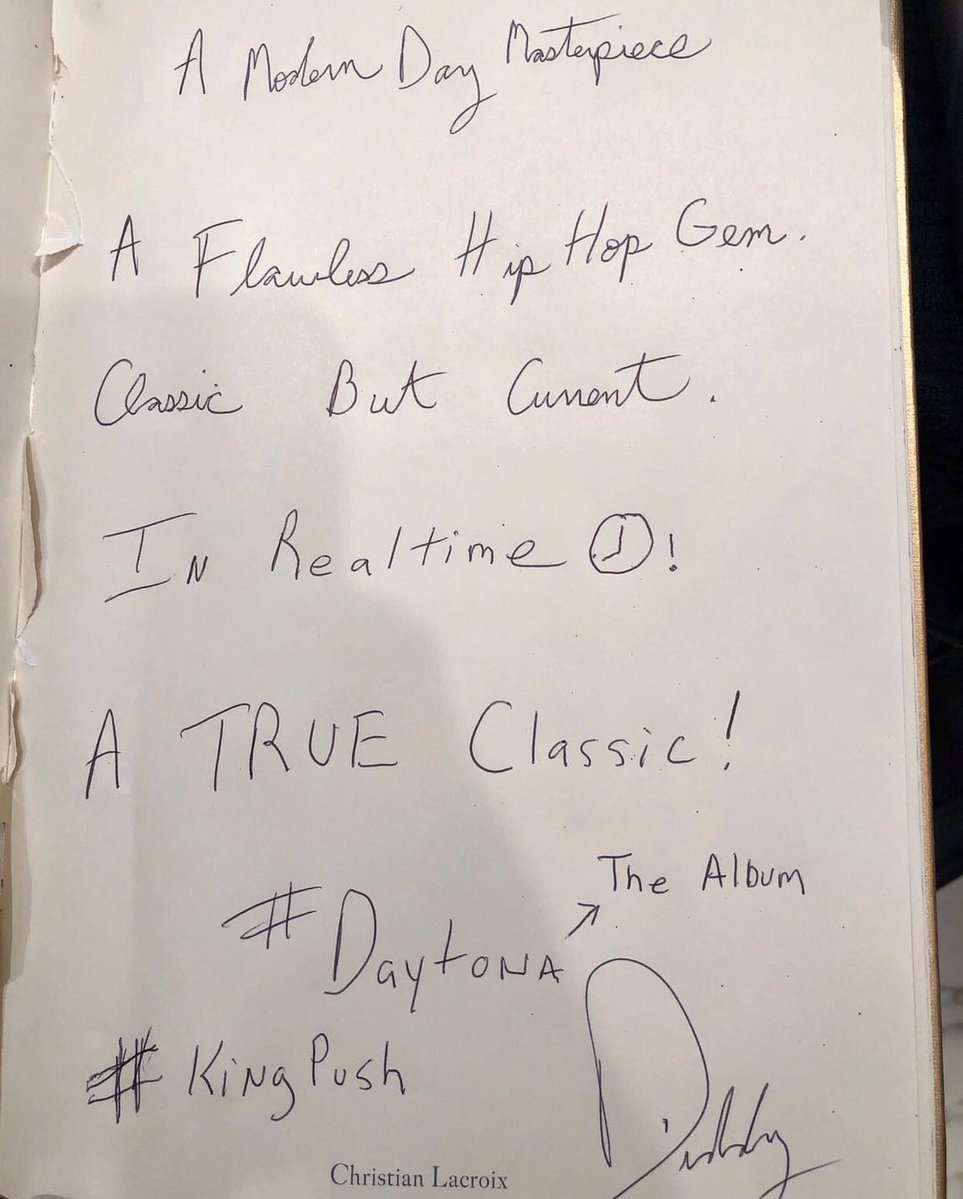 A Modern Day Masterpiece
A Flawless Hip Hop Gem.
Classic But Current.
In Realtime !
A TRUE Classic!
The Album
#Daytona
#KingPush
Diddy
Christian Lacroix